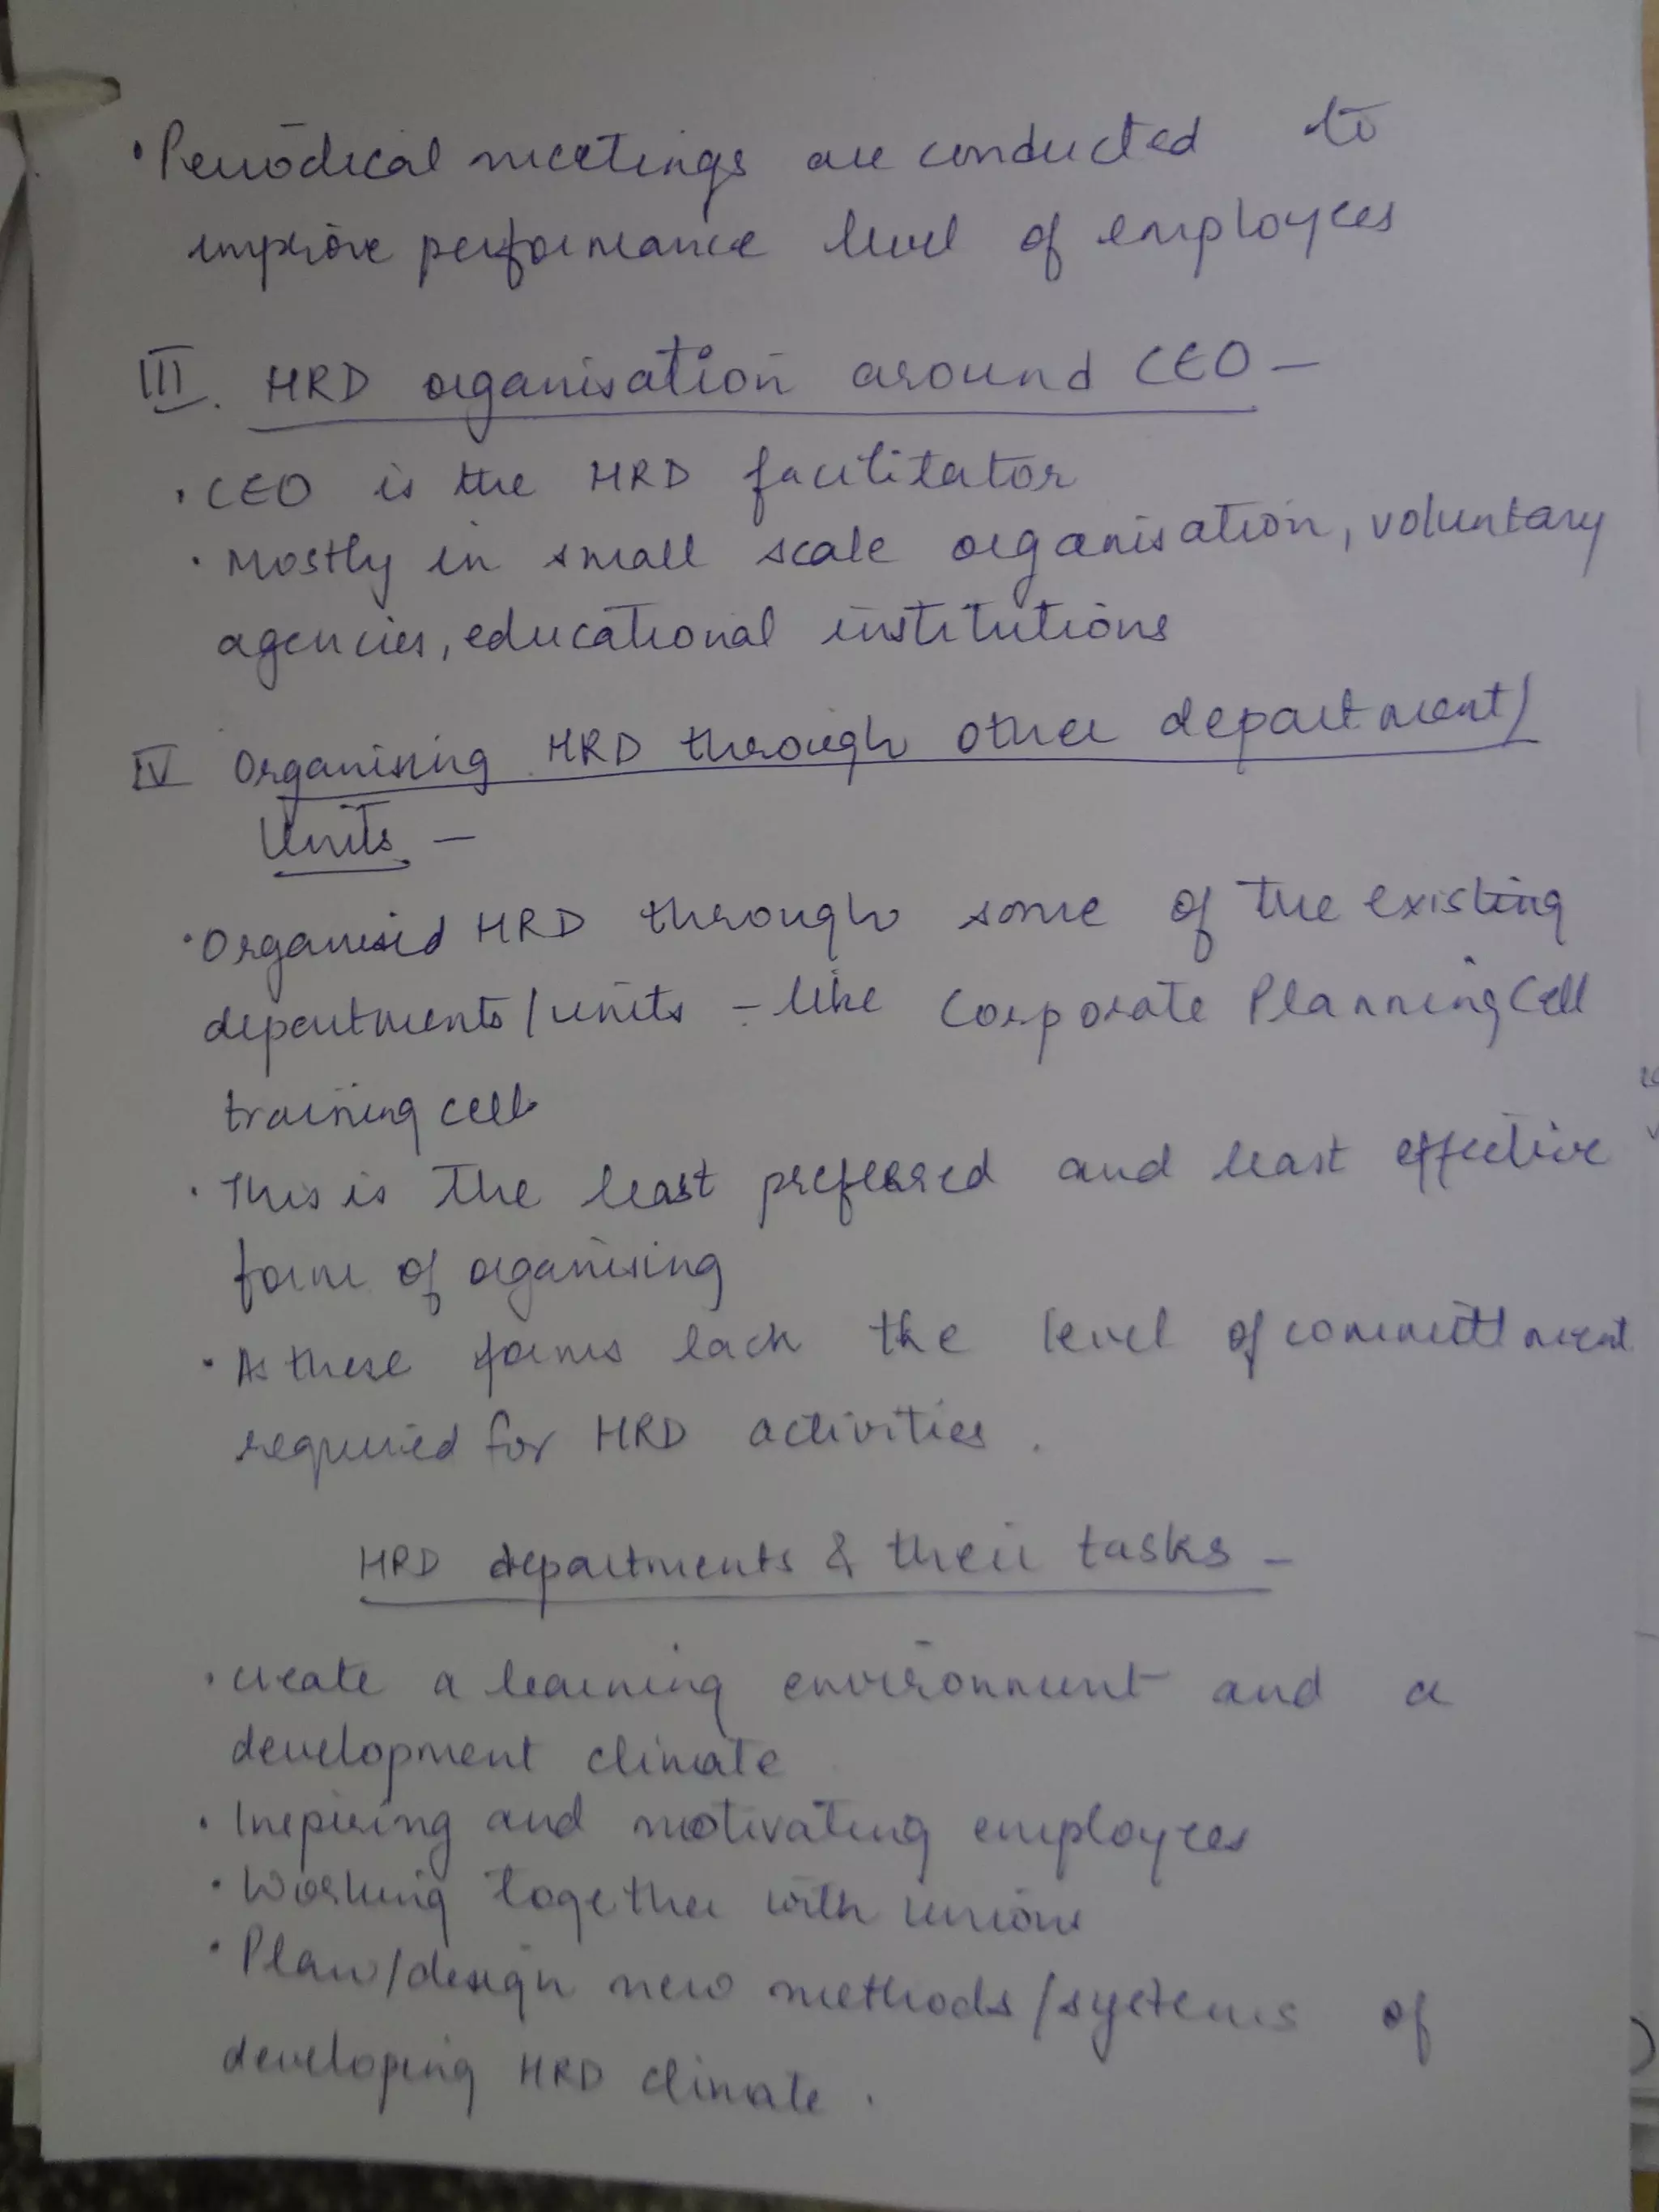 • Periodical meetings are conducted to
improve performance level of employees
III. HRD organisation around CEO –
• CEO is the HRD facilitator
• Mostly in small scale organisation, voluntary
agencies, educational institutions
IV Organising HRD through other department/
Units –
• Organised HRD through some of the existing
departments/units – like Corporate Planning Cell
training cell
• This is the least preferred and least effective
form of organising
• As these forms lack the level of committment
required for HRD activities.
HRD departments & their tasks –
• Create a learning environment and a
development climate
• Inspiring and motivating employees
• Working together with unions
• Plan/design new methods/systems of
developing HRD climate.